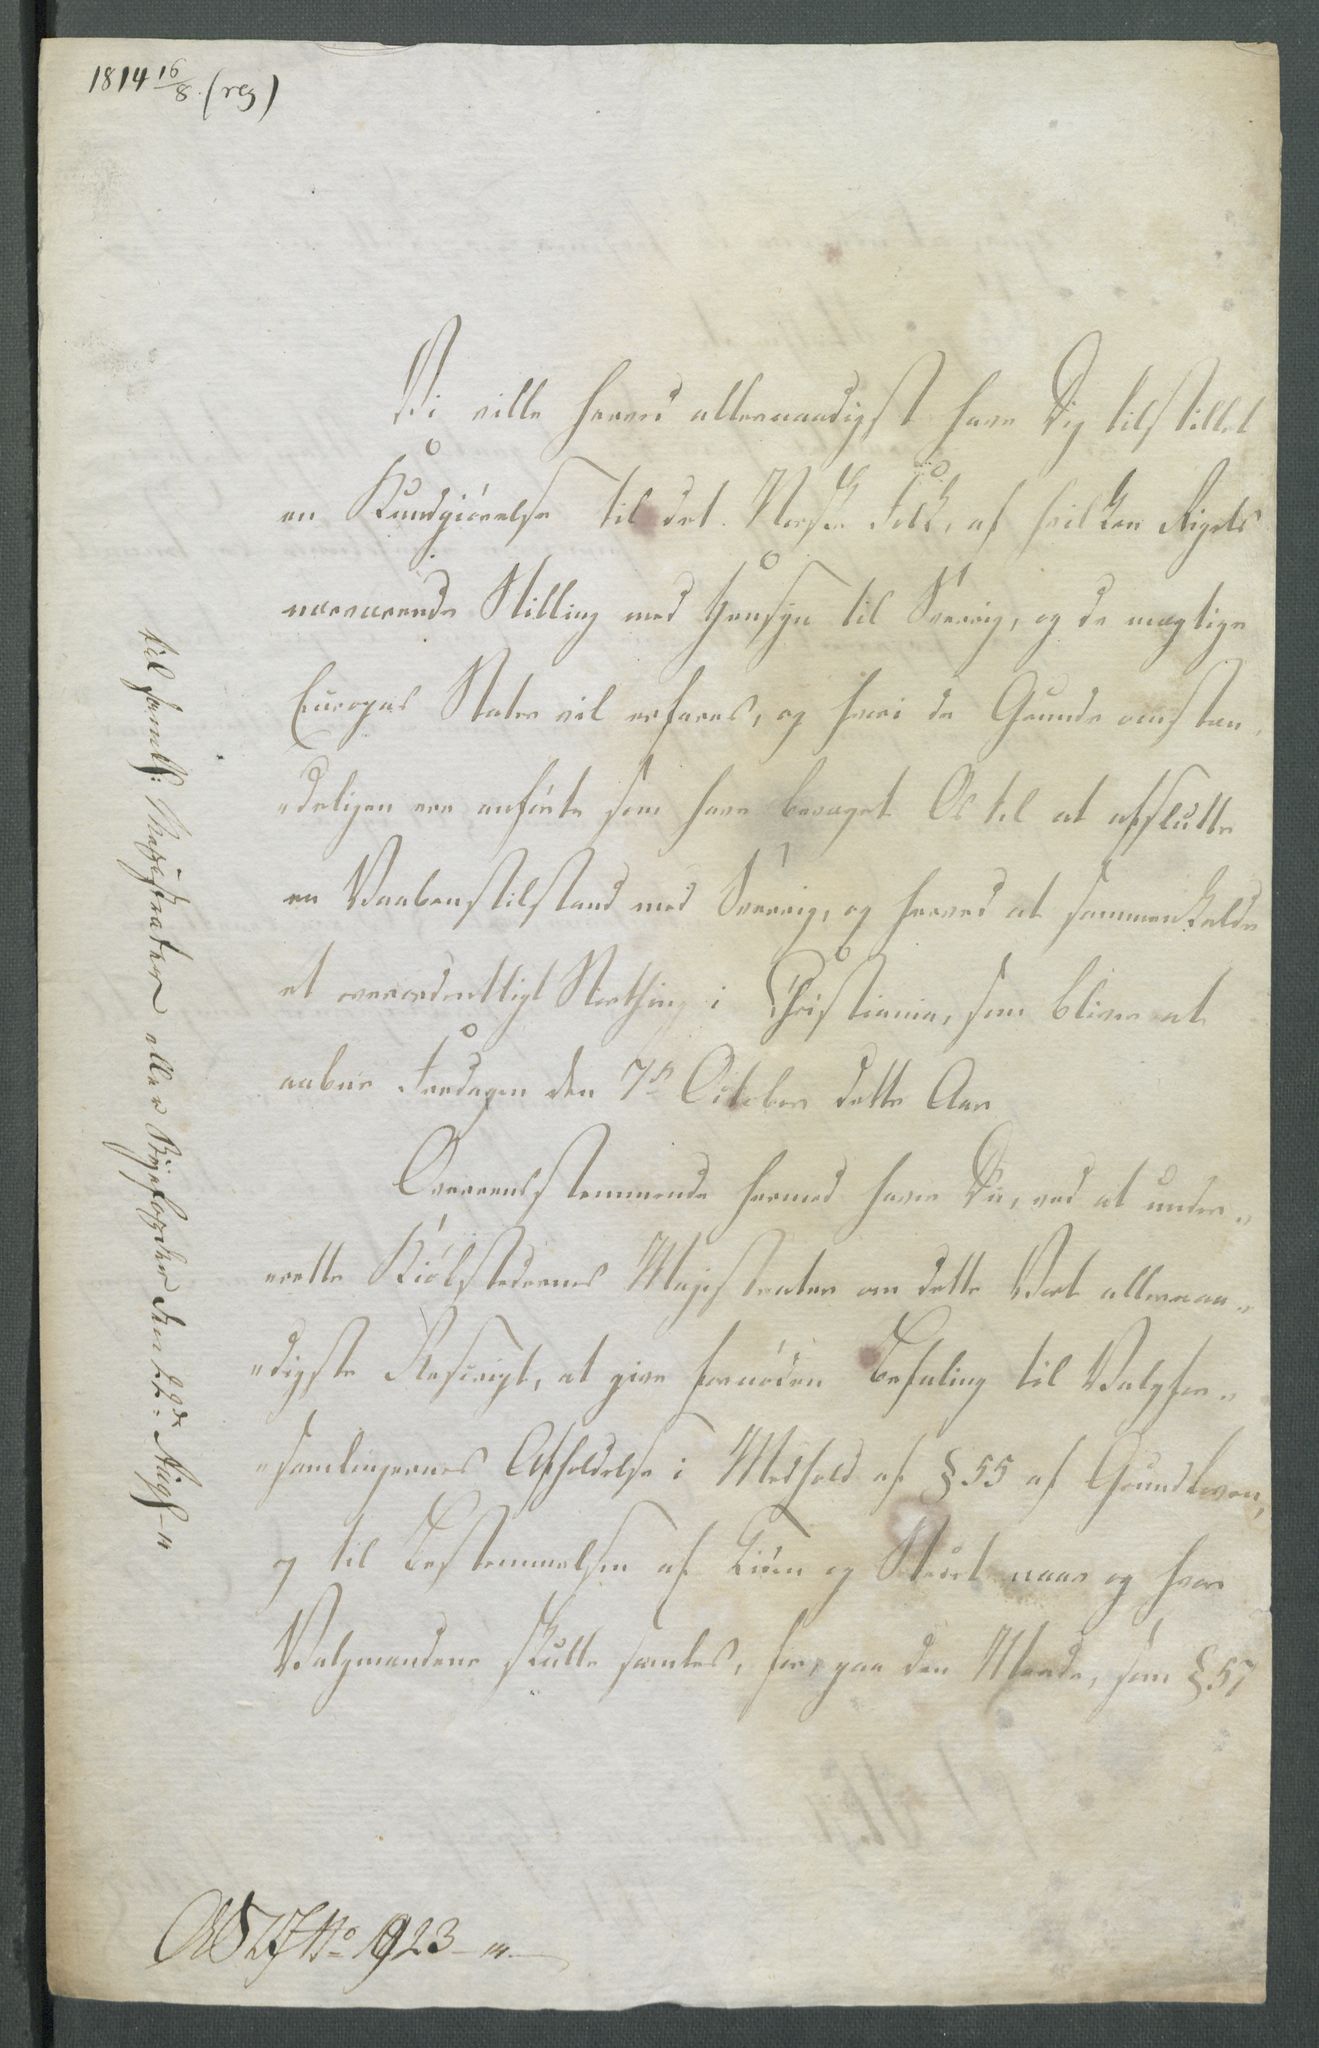 1814 16/8. (reg)
Vi ville herved allernaadigst have Dig tilstillet
en Kundgiörelse til det Norske Folk, af hvilken Rigets
nærværende Stilling med Hensyn til Sverrig, og de mægtige
Europas Stater vil erfares, og hvori de Grunde omstæn„
„deligen ere anförte som have bevæget Os til at afslutte
en Vaabenstilstand med Sverrig, og herved at sammenkalde
et overordentligt Storthing i Christiania, som bliver at
aabne Fredagen den 7de October dette Aar
Overeensstemmende hermed haver Du, ved at under„
„rette Kiöbstedernes Magistrater om dette Vort allernaa„
„digste Rescript, at give fornöden Befaling til Valgfor„
„samlingernes Afholdelse i Medhold af § 55 af Grundloven,
og til Bestemmelsen af Tiden og Stedet naar og hvor
Valgmændene skulle samles, for, paa den Maade, som § 57
til samtl: Magistrater eller Byefogder den 22de Augst „
No 1923